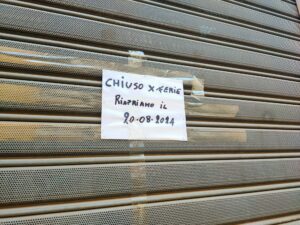 CHIUSO X FERIE
RIAPRIAMO IL
20-08-2024